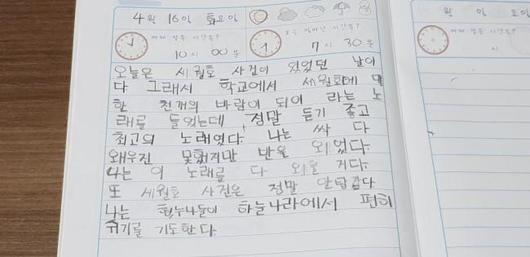 4월 16일 화요일
10시 00분
7시 30분
오늘은 세월호 사건이 있었던 날이
다 그래서 학교에서 세월호에 대
한 천개의 바람이 되어 라는 노
래를 들었는데 정말 듣기 좋고
최고의 노래였다. 나는 싹 다
외우진 못했지만 반을 외웠다.
나는 이 노래를 다 외울 거다.
또 세월호 사건은 정말 안탑갑다
나는 형누나들이 하늘나라에서 편히
쉬기를 기도한다
월 일 요일